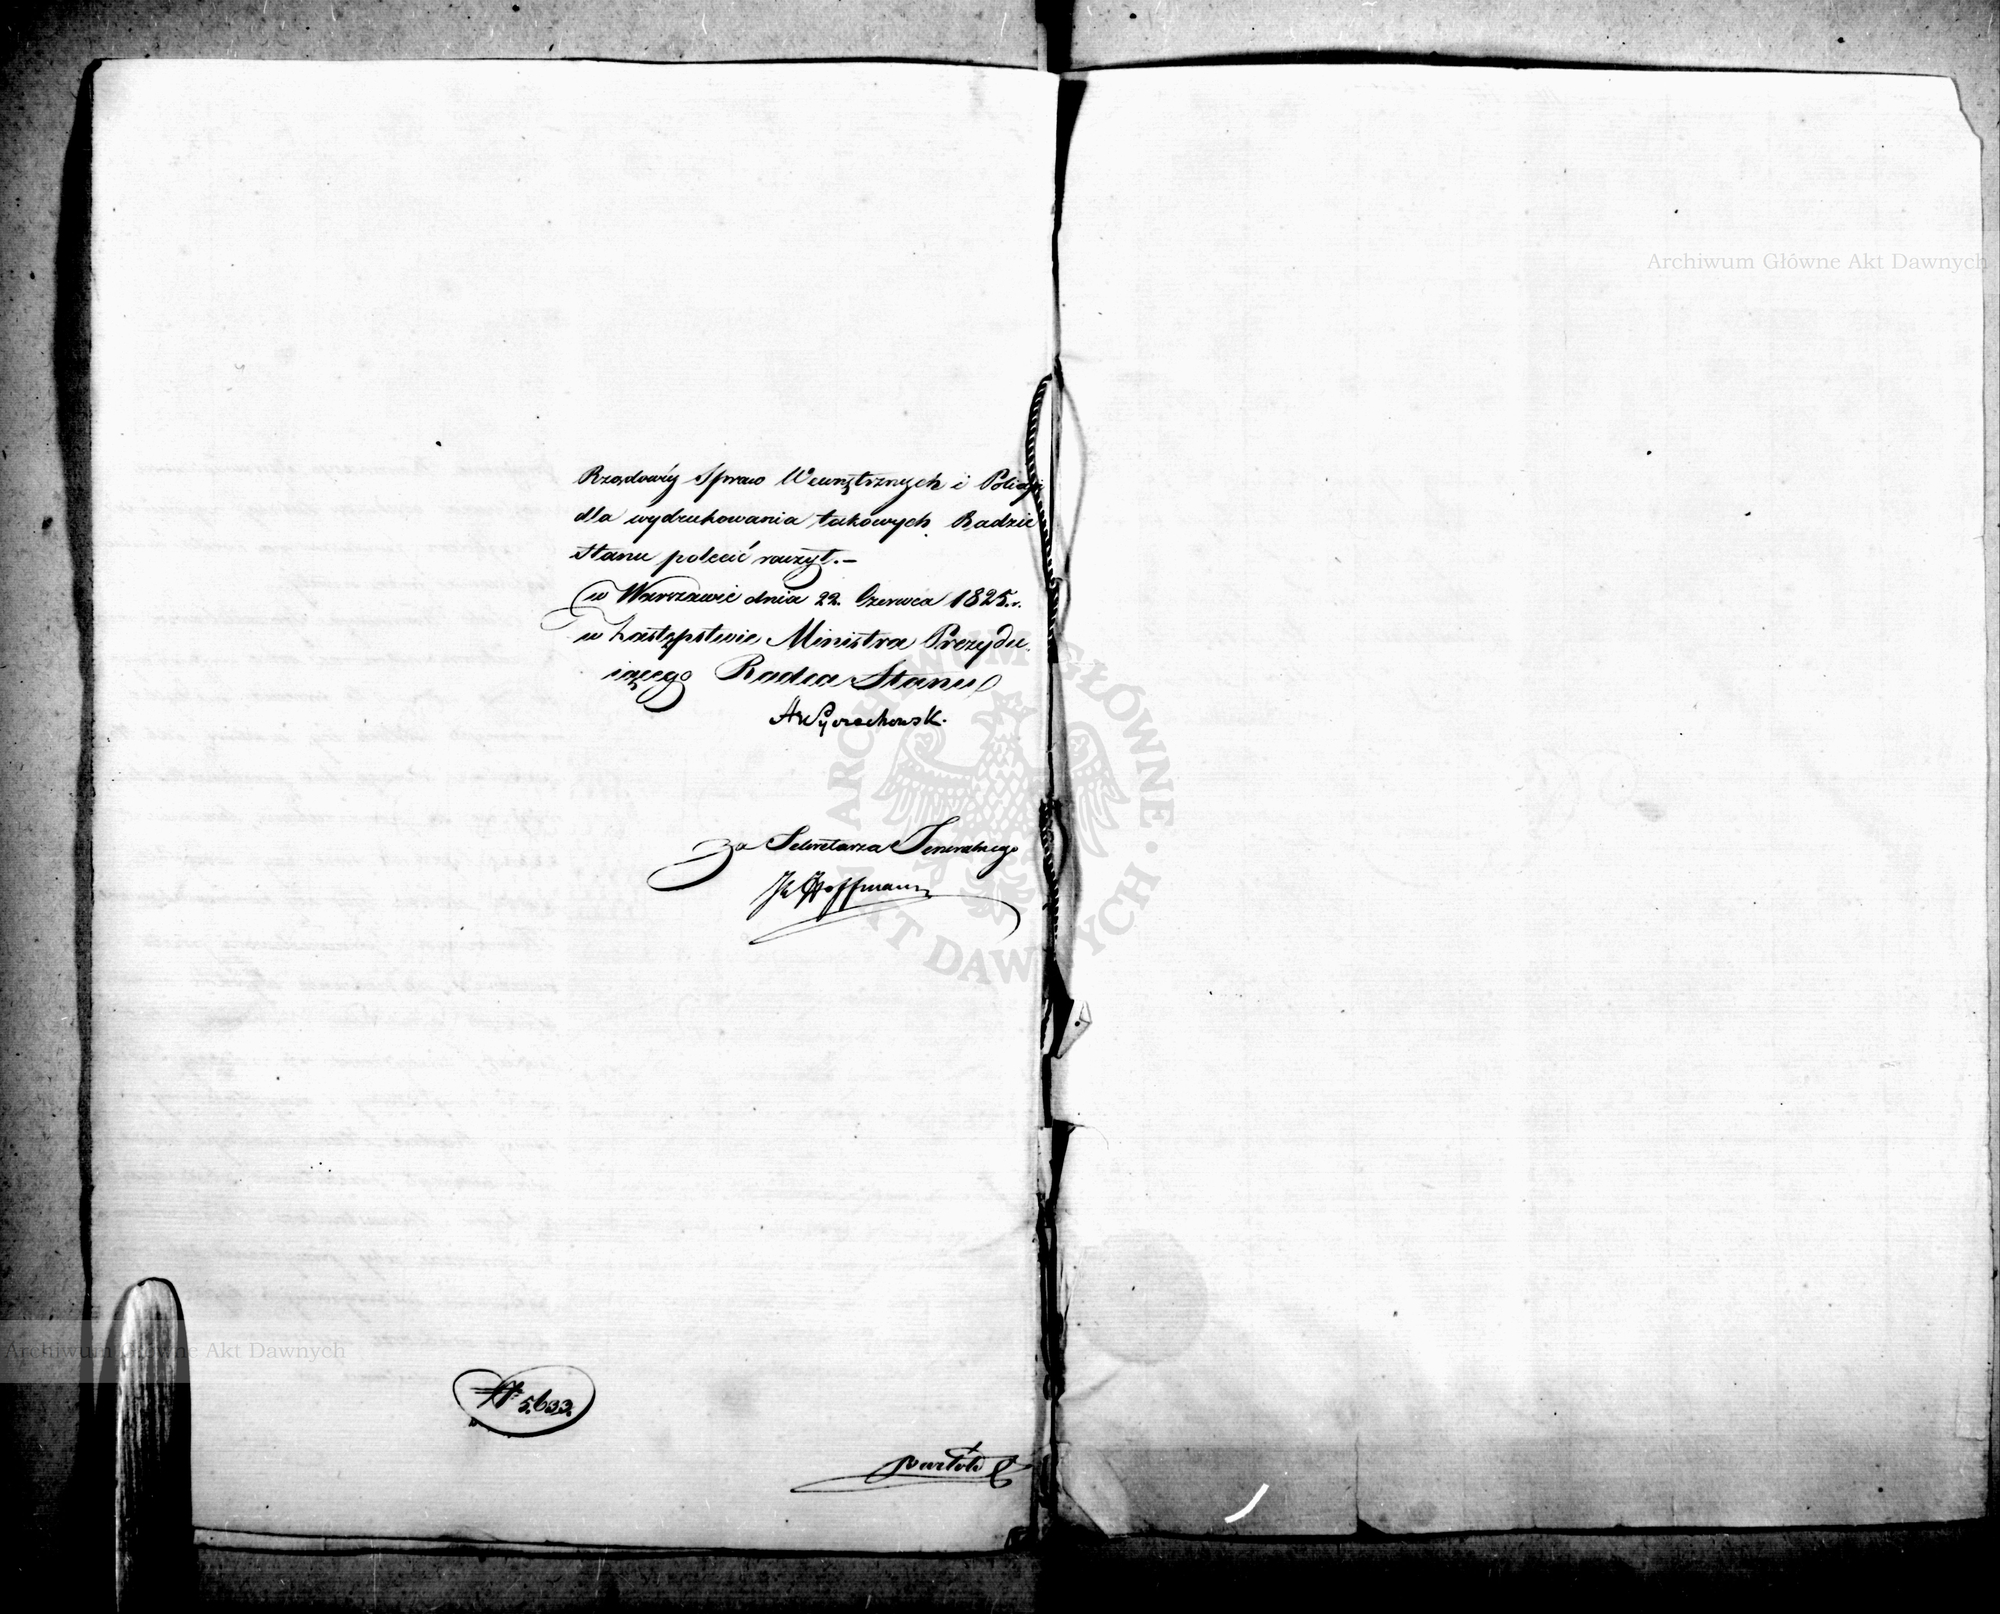 Rządowéy Spraw Wewnętrznych i Policyi
dla wydrukowania takowych Radzie
Stanu polecić raczył.—
w Warszawie dnia 22. Czerwca 1825. r.
w Zastępstwie Ministra Prezydu-
iącego Radca Stanu
AWyczechowski
Za Sekretarza Jeneralnego
Hoffmann
N 5,633.
Archiwum Główne Akt Dawnych
Archiwum Główne Akt Dawnych
ARCHIWUM GŁÓWNE AKT DAWNYCH